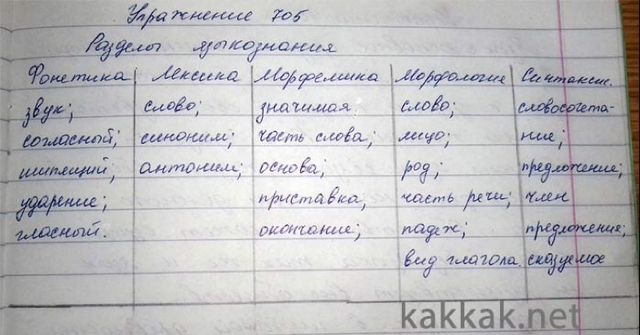 Упражнение 705
Разделы языкознания
Фонетика Лексика Морфемика Морфология Синтаксис.
звук; слово; значимая слово; словосочета-
согласный; синоним; часть слова; лицо; ние;
шипящий; антоним; основа; род; предложение;
ударение; приставка; часть речи; член
гласный. окончание; падеж; предложение;
вид глагола. сказуемое
kakkak.net